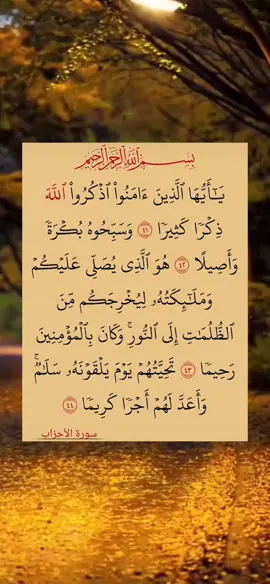 بِسْمِ ٱللَّهِ ٱلرَّحْمَٰنِ ٱلرَّحِيمِ
يَٰٓأَيُّهَا ٱلَّذِينَ ءَامَنُوا۟ ٱذْكُرُوا۟ ٱللَّهَ
ذِكْرًا كَثِيرًا ٤١ وَسَبِّحُوهُ بُكْرَةً
وَأَصِيلًا ٤٢ هُوَ ٱلَّذِى يُصَلِّى عَلَيْكُمْ
وَمَلَٰٓئِكَتُهُۥ لِيُخْرِجَكُم مِّنَ
ٱلظُّلُمَٰتِ إِلَى ٱلنُّورِ ۚ وَكَانَ بِٱلْمُؤْمِنِينَ
رَحِيمًا ٤٣ تَحِيَّتُهُمْ يَوْمَ يَلْقَوْنَهُۥ سَلَٰمٌ ۚ
وَأَعَدَّ لَهُمْ أَجْرًا كَرِيمًا ٤٤
سورة الأحزاب